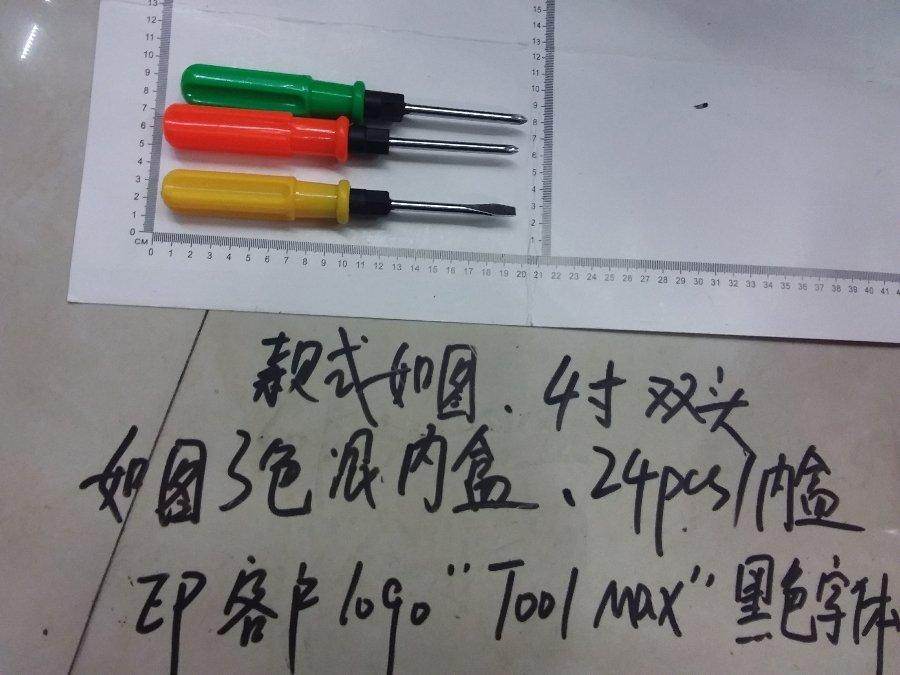 13
12
11
10
9
8
7
6
5
4
3
2
1
0
CM
0 1 2 3 4 5 6 7 8 9 10 11 12 13 14 15 16 17 18 19 20 21 22 23 24 25 26 27 28 29 30 31 32 33 34 35 36 37 38 39 40 41
15
14
13
12
11
10
9
8
7
6
5
4
3
2
1
款式如图、4寸双头
如图3色混内盒、24pcs/内盒
印客户logo "Tool Max" 黑色字体